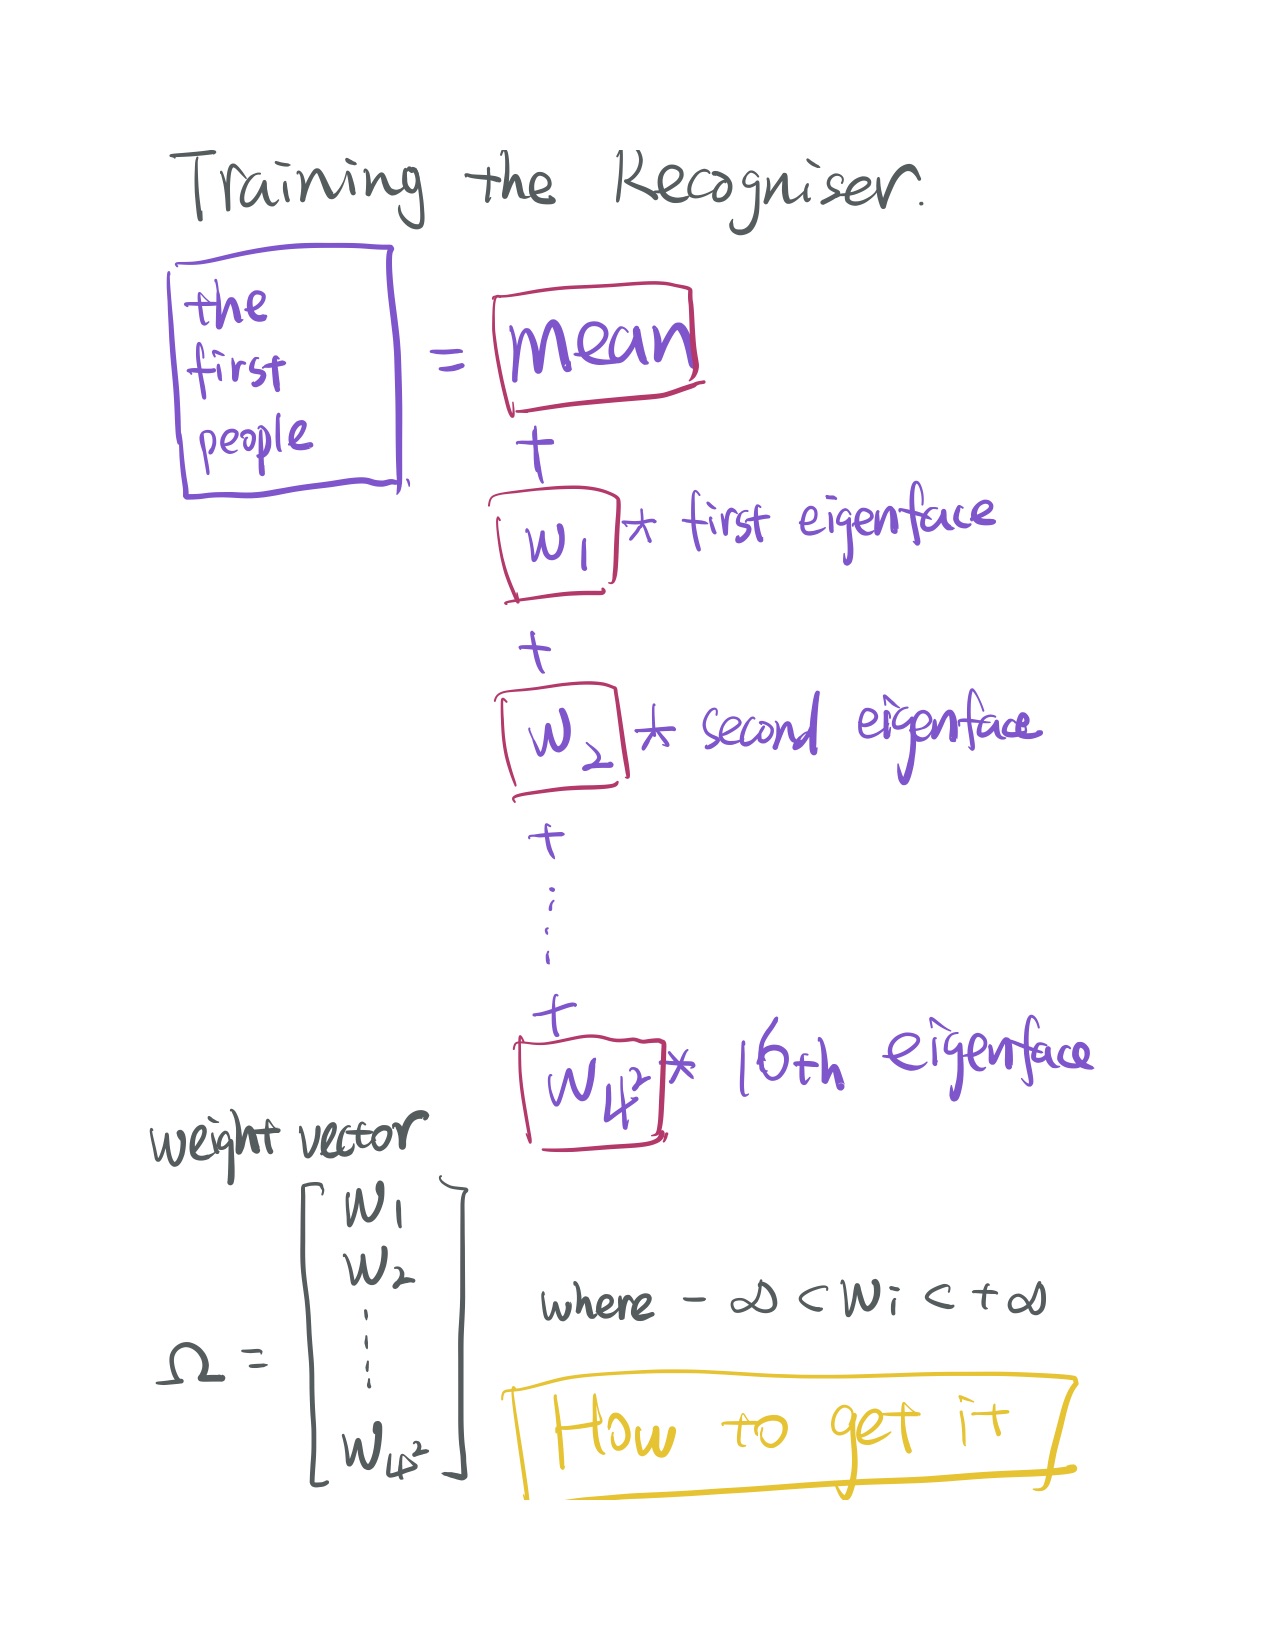 Training the Recogniser.
the
first
people
= mean
+
w₁ * first eigenface
+
w₂ * second eigenface
+
⋮
+
w₄² * 16th eigenface
weight vector
Ω = [ w₁
w₂
⋮
w₄² ]
where -∞ < wᵢ < +∞
How to get it